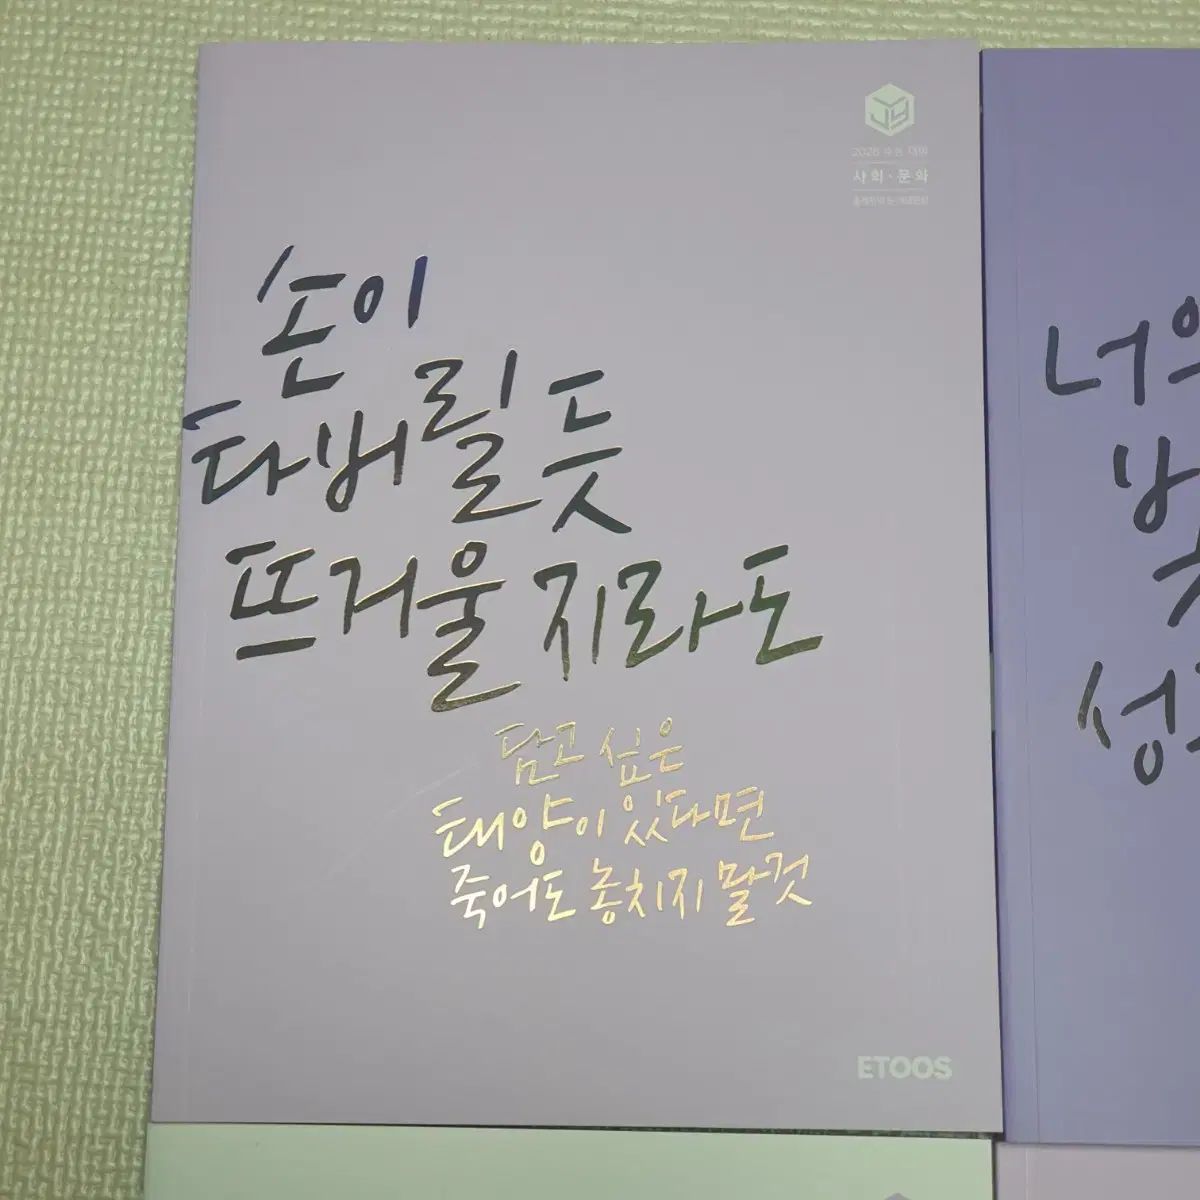 2026 수능 대비
사회·문화
손이
타버릴 듯
뜨거울지라도
담고 싶은
태양이 있다면
죽어도 놓치지 말 것
ETOOS
너의
빛